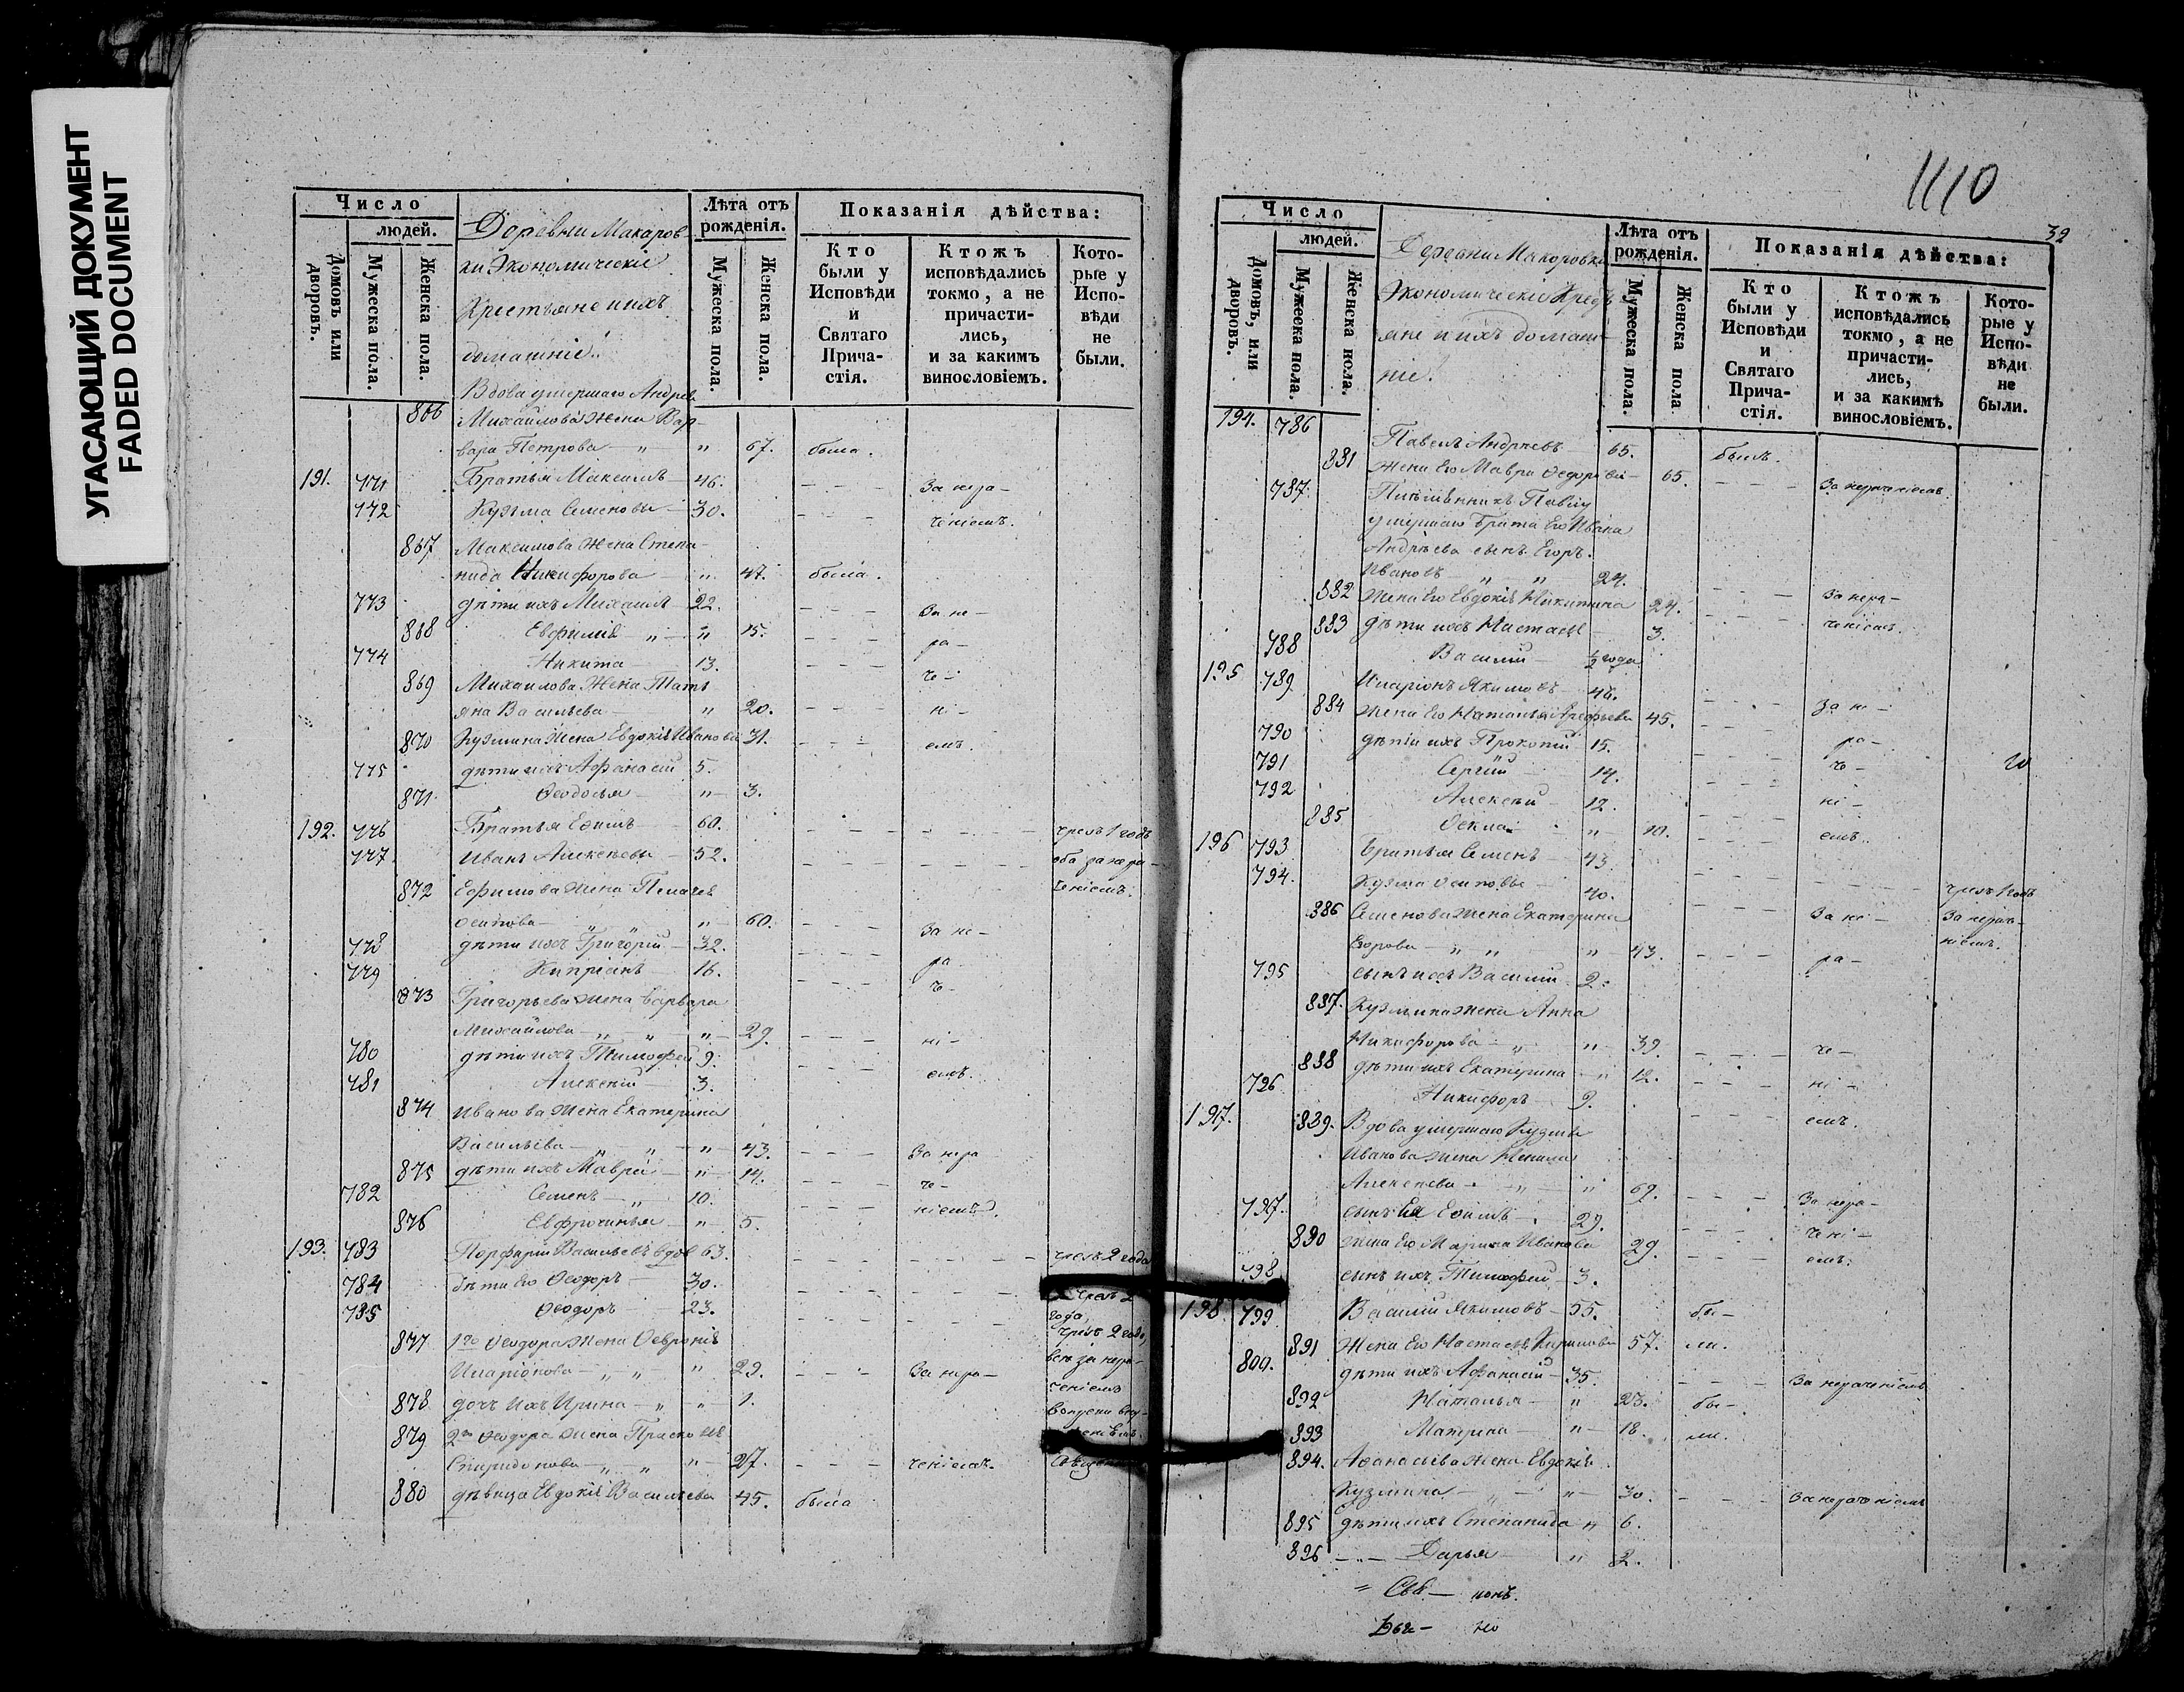 УГАСАЮЩИЙ ДОКУМЕНТ
FADED DOCUMENT
Число
людей.
Домовъ или дворовъ.
Мужеска пола.
Женска пола.
Деревни Макаров-
ки Экономическiе
Крестьяне и ихъ
домашнiе.
Лѣта отъ рожденiя.
Мужеска пола.
Женска пола.
Показанiя дѣйства:
Кто были у Исповѣди и Святаго Прича-стiя.
Ктожъ исповѣдались токмо, а не причасти-лись, и за какимъ винословiемъ.
Кото-рые у Испо-вѣди не были.
Вдова умершаго Андрея
866 Михайлова жена Вар-
вара Петрова „ „ 67. была.
191. 771 Братья Максимъ 46. За нера-
772 Кузма Семеновы 30. ченiемъ.
867 Максимова жена Степа-
нида Никифорова „ 47. была.
773 дѣти ихъ Михаилъ 22. За не-
868 Евфимiя „ „ 15. ра-
774 Никита 13. че-
869 Михаилова жена Татъ
яна Васильева „ 20. нi-
870 Кузмина жена Евдокiя Иванова 31. емъ.
775 дѣти ихъ Афанасiй 5.
871 Ѳеодосья „ 3.
192. 776 Братья Ефимъ 60. чрезъ 1 годъ
777 Иванъ Алексѣевы 52. оба за нера-
872 Ефимова жена Пелагея ченiемъ.
Осипова „ „ 60. За не-
778 дѣти ихъ Григорiй 32. ра-
779 Кипрiанъ 16. че-
873 Григорьева жена Варвара
Михайлова „ „ „ 29. нi-
780 дѣти ихъ Тимофей 9. емъ.
781 Алексѣй 3.
874 Иванова жена Екатерина
Васильева „ „ „ 43. За нера
875 дѣти ихъ Мавра „ 14. че-
782 Семенъ „ 10. нiемъ.
876 Евфросинья „ 5.
193. 783 Порфирiй Васильевъ вдов 63. чрезъ 2 года
784 дѣти его Ѳеодоръ 30. чрезъ 2
785 Ѳеодоръ 23. года,
877 1го Ѳеодора жена Ѳеврониѣ чрезъ 2 года,
Иларiонова „ „ „ 29. За нера- всѣ за нера-
878 дочь ихъ Ирина „ „ 1. ченiемъ
879 2го Ѳеодора жена Прасковiя
Спиридонова „ „ „ 27. ченiемъ.
880 дѣвица Евдокiя Васильева 45. была
1110
32
Число
людей.
Домовъ, или дворовъ.
Мужеска пола.
Женска пола.
Деревни Макаровки
Экономическiе Кресть-
яне и ихъ домаш-
нiе.
Лѣта отъ рожденiя.
Мужеска пола.
Женска пола
Показанiя дѣйства:
Кто были у Исповѣди и Святаго Прича-стiя.
Ктожъ исповѣдались токмо, а не причасти-лись, и за какимъ винословiемъ.
Кото-рые у Испо-вѣди не были.
194. 786 Павелъ Андреевъ 65. былъ.
881 Жена его Мавра Ѳедорова 65. За нераченiемъ.
787. Племянникъ Павлу
умершаго брата его Ивана
Андрѣева сынъ Егоръ
Ивановъ „ „ 24. За нера-
882 Жена его Евдокiя Никитина 24. ченiемъ.
883 дѣти ихъ Настасья 3.
788 Василiй 1/2 года
195 789 Иларiонъ Якимовъ 46. За не-
884 Жена его Наталья Арефьева 45. ра-
790 дѣти ихъ Прокопiй 15. че-
791 Сергiй 14. нi-
792 Алексѣй 12. емъ.
885 Ѳекла „ 10.
196 793 Братья Семенъ 43. чрезъ 1 годъ
794. Кузма Осиповы 40. За нераче-
886 Семенова жена Екатерина За не- нiемъ.
Егорова „ „ „ 43. ра-
795 сынъ ихъ Василiй 2.
887. Кузмина жена Анна
Никифорова „ „ 39. че-
888 дѣти ихъ Екатерина „ 12. нi-
796 Никифоръ 9. емъ.
197. 889. Вдова умершаго Кузмы
Иванова жена Ненила
Алексѣева „ „ 69. За нера-
797. сынъ Ея Ефимъ 29. ченi-
890 Жена Его Марина Иванова 29. емъ.
798 сынъ ихъ Тимофей 3.
198 799 Василiй Якимовъ 55. бы-
891 Жена Его Настасья Кирилова 57. ли.
800. дѣти ихъ Афанасiй 35. За нераченiемъ
892 Наталья „ 23. бы-
893 Матрена „ 18. ли.
894. Афанасьева жена Евдокiя
Кузмина „ „ 30. За нераченiемъ
895 дѣти ихъ Степанида „ 6.
896 „ Дарья „ 2.